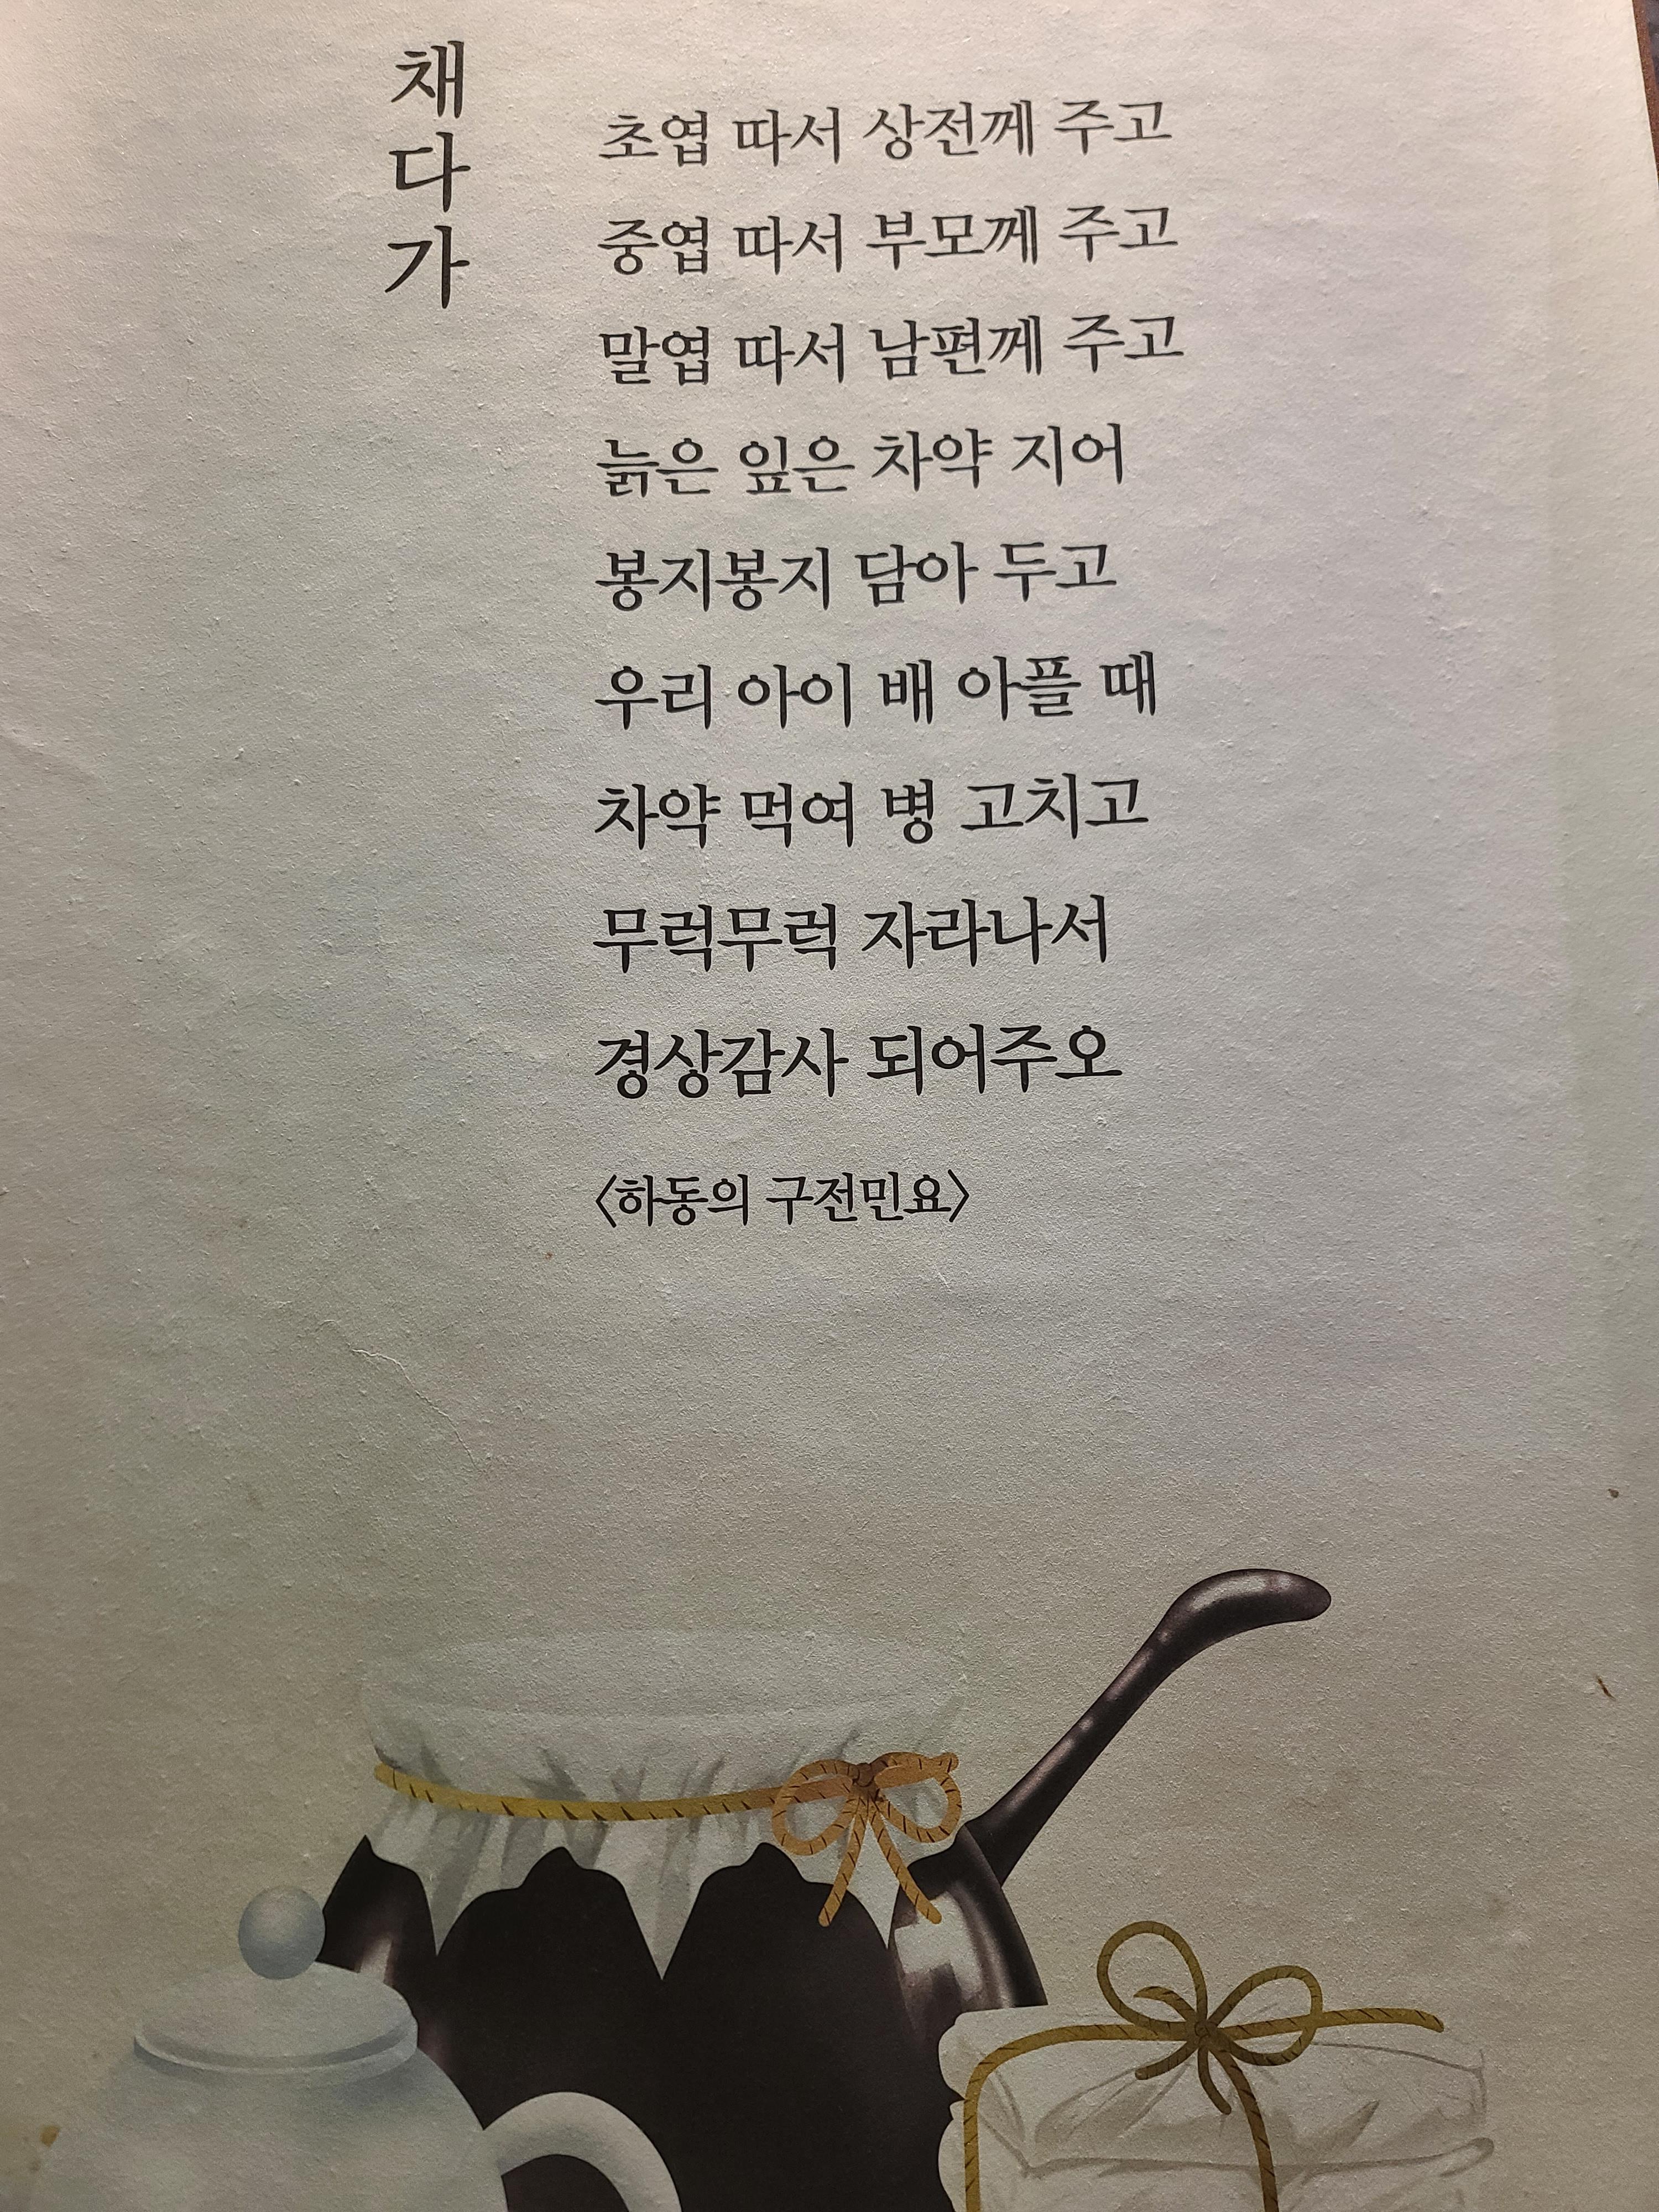 채다가
초엽 따서 상전께 주고
중엽 따서 부모께 주고
말엽 따서 남편께 주고
늙은 잎은 차약 지어
봉지봉지 담아 두고
우리 아이 배 아플 때
차약 먹여 병 고치고
무럭무럭 자라나서
경상감사 되어주오
<하동의 구전민요>